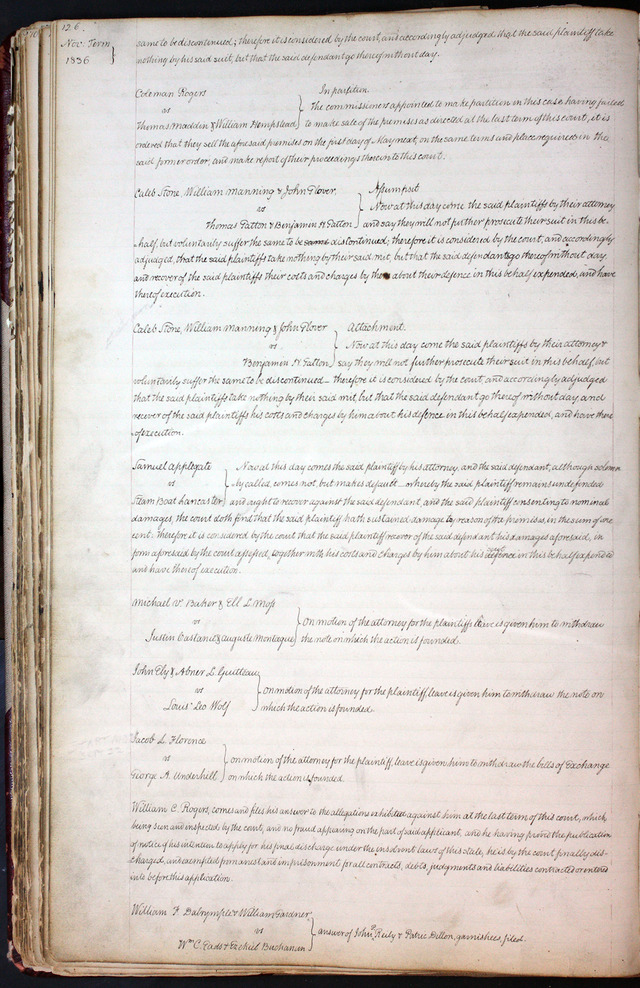 126.
Nov. Term
1836
same to be discontinued; therefore it is considered by the court, and accordingly adjudged, that the said plaintiff take
nothing by his said suit, but that the said defendant go thereof without day.
Coleman Rogers
vs
Thomas Maddin & William Hempstead
In partition.
The commissioners appointed to make partition in this case having failed
to make sale of the premises as directed at the last term of this court, it is
ordered that they sell the aforesaid premises on the first day of May next, on the same terms and place required in the
said former order, and make report of their proceedings therein to this court.
Caleb Stone, William Manning & John Glover
vs
Thomas Patton & Benjamin H Patton
Assumpsit
Now at this day come the said plaintiffs by their attorney
and say they will not further prosecute their suit in this be-
half, but voluntarily suffer the same to be same discontinued; therefore it is considered by the court, and accordingly
adjudged, that the said plaintiffs take nothing by their said writ, but that the said defendants go thereof without day
and recover of the said plaintiffs their costs and charges by them about their defence in this behalf expended, and have
thereof execution.
Caleb Stone, William Manning & John Glover
vs
Benjamin H. Patton
Attachment.
Now at this day come the said plaintiffs by their attorney &
say they will not further prosecute their suit in this behalf, but
voluntarily suffer the same to be discontinued – therefore it is considered by the court, and accordingly adjudged
that the said plaintiffs take nothing by their said writ, but that the said defendant go thereof without day and
recover of the said plaintiffs his costs and charges by him about his defence in this behalf expended, and have there
of execution.
Samuel Applegate
vs
Steam Boat Lancaster
Now at this day comes the said plaintiff by his attorney, and the said defendant, although solemn
ly called, comes not, but makes default – whereby the said plaintiff remains undefended
and aught to recover against the said defendant, and the said plaintiff consenting to nominal
damages, the court doth find that the said plaintiff hath sustained damage by reason of the premises, in the sum of one
cent. Therefore it is considered by the court that the said plaintiff recover of the said defendant his damages aforesaid, in
form aforesaid by the court assessed, together with his costs and charges by him about his defence in this behalf expended
and have thereof execution.
Michael V. Baker & Ell L. Moss
vs
Justin Castanie & Auguste Montaque
On motion of the attorney for the plaintiffs leave is given him to withdraw
the note on which the action is founded.
John Ely & Abner L. Guitteau
vs
Louis Leo Wolf
On motion of the attorney for the plaintiff, leave is given him to withdraw the note on
which the action is founded.
Jacob L. Florence
vs
George A. Underhell
On motion of the attorney for the plaintiff, leave is given him to withdraw the bills of Exchange
on which the action is founded.
William C. Rogers, comes and files his answer to the allegations exhibited against him at the last term of this court, which
being seen and inspected by the court, and no fraud appearing on the part of said applicant, and he having proved the publication
of notice of his intention to apply for his final discharge under the insolvent laws of this state, he is by the court finally dis-
charged, and exempted from arrest and imprisonment for all contracts, debts, judgments and liabilities contracted or entered
into before this application.
William F. Dalrymple & William Gardner
vs
Wm C. Eads & Ezekiel Buchanan
answer of John Reily & Patric Dillon, garnishees, filed.